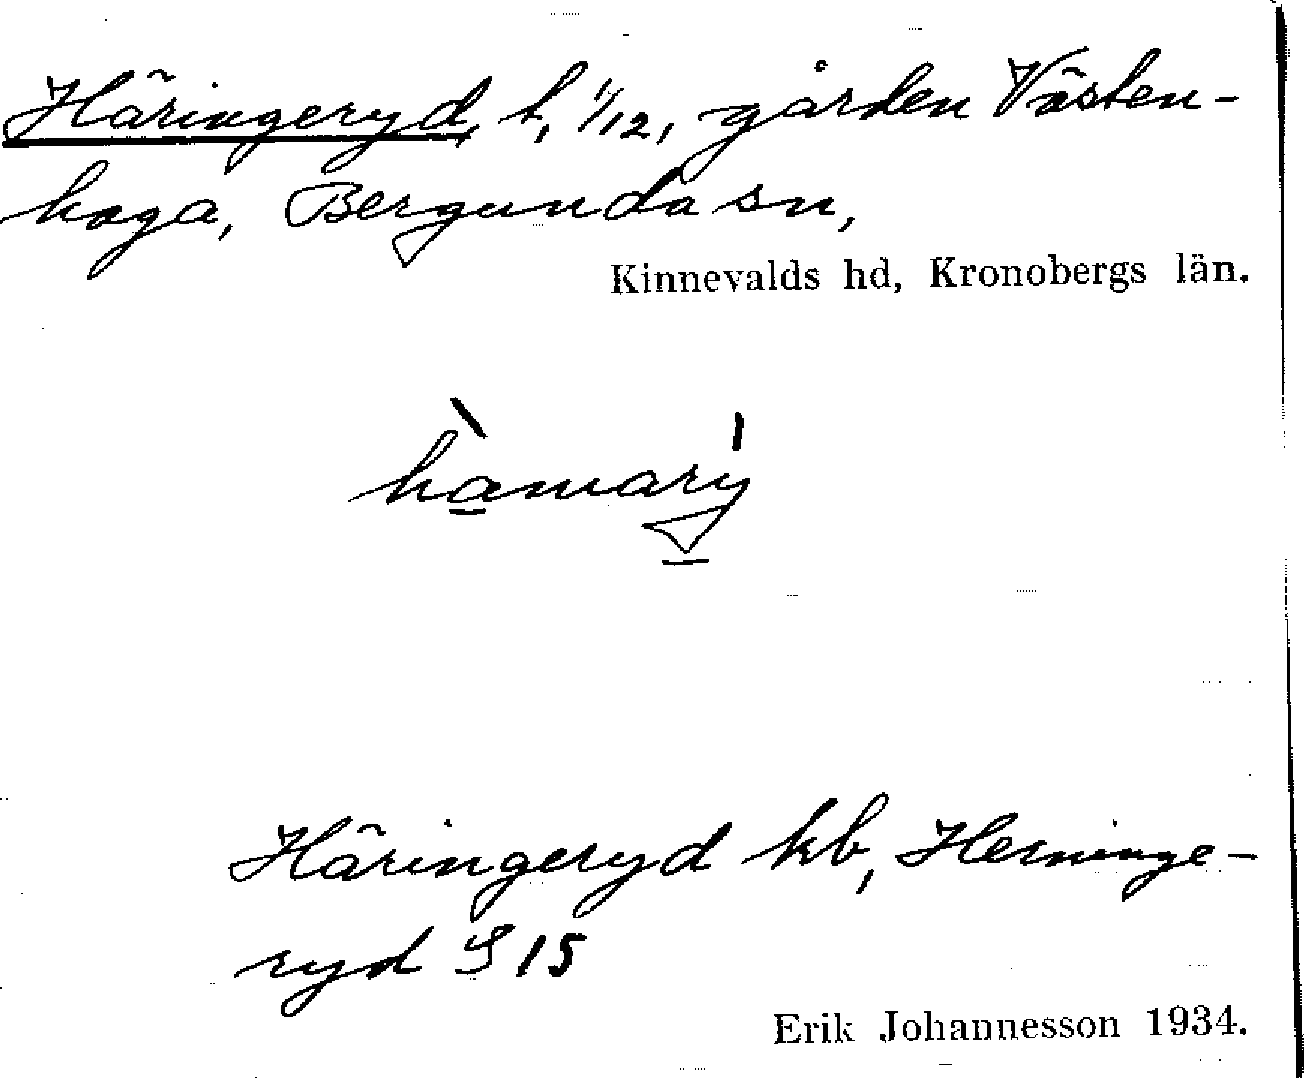 Häringeryd, t, 1/12, gården Västen-
haga, Bergunda sn,
Kinnevalds hd, Kronobergs län.
Häringeryd kb, Herninge-
ryd S 15
Erik Johannesson 1934.